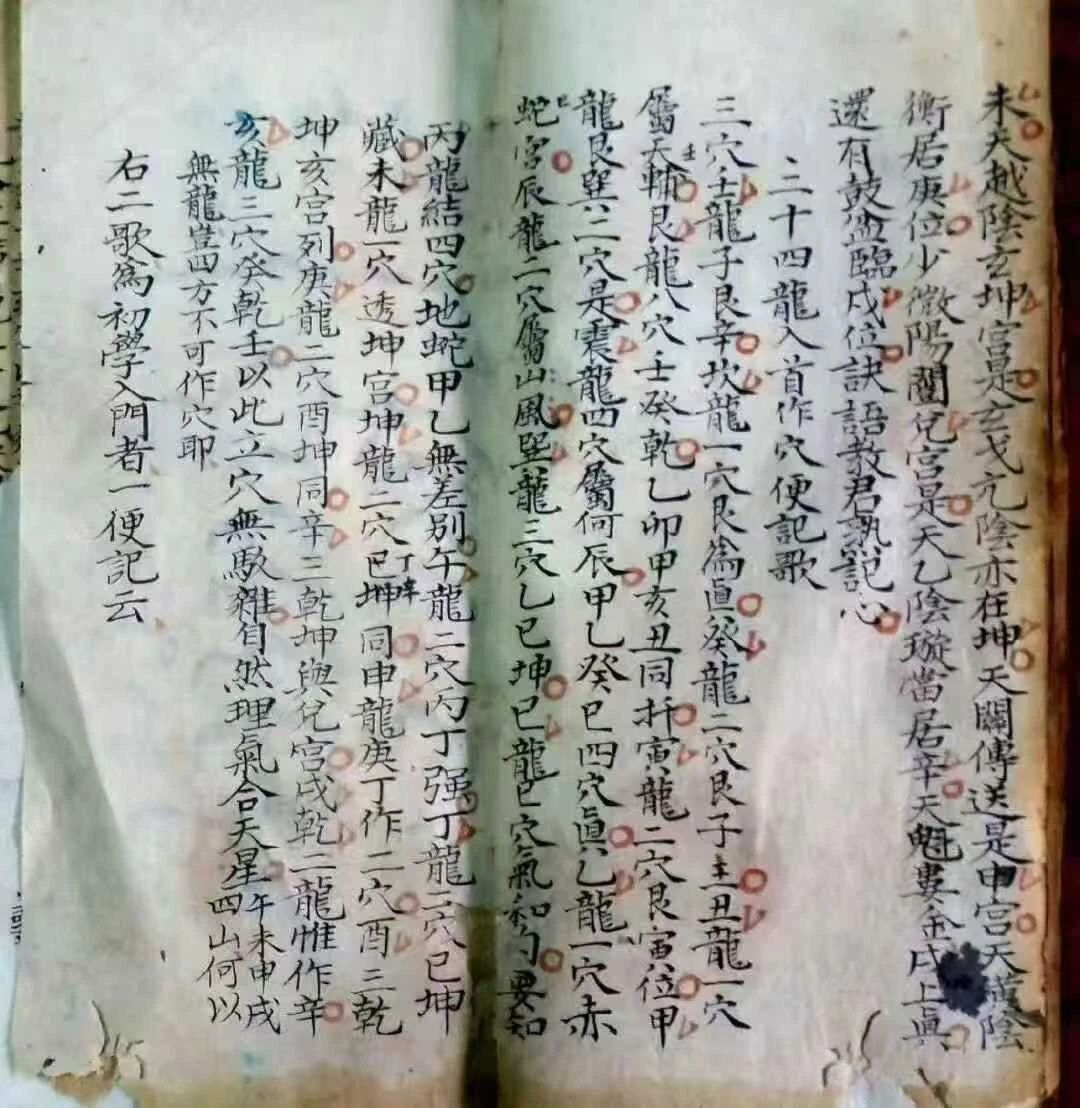 未天越陰玄坤宮是玄戈亢陰亦在坤天關傳送是申宮天潢陰
衡居庚位少微陽闔兌宮是天乙陰璇當居辛天魁婁金戌上眞
還有鼓盆臨戌位訣語教君熟記心
二十四龍入首作穴便記歌
三穴壬龍子艮辛坎龍一穴艮為眞癸龍二穴艮子主丑龍一穴
屬天輔艮龍八穴壬癸乾乙卯甲亥丑同扦寅龍二穴艮寅位甲
壬
龍艮巽二穴是震龍四穴屬何辰甲乙癸巳四穴眞乙龍一穴赤
蛇宮辰龍二穴屬山風巽龍三穴乙巳坤巳龍巳穴氣和勻要知
巳
丙龍結四穴地蛇甲乙無差別午龍二穴丙丁强丁龍二穴巳坤
藏未龍一穴透坤宮坤龍二穴巳坤同申龍庚丁作二穴酉三乾
丁
坤亥宮列庚龍二穴酉坤同辛三乾坤與兌宮戌乾二龍惟作辛
亥龍三穴癸乾壬以此立穴無駁雜自然理氣合天星午未申戌四山何以
無龍豈四方不可作穴耶
右二歌為初學入門者一便記云